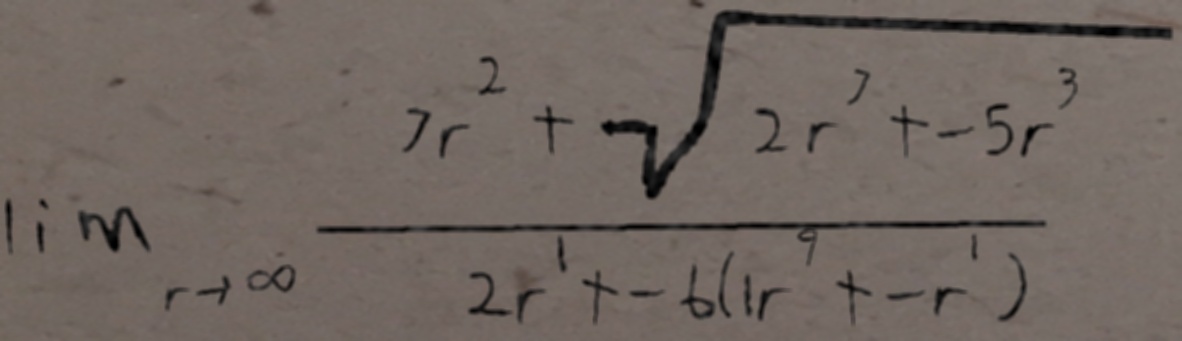 \lim_{r \to \infty} \frac{7r^2 + \sqrt{2r^7 + -5r^3}}{2r^1 + -6(1r^9 + -r^1)}